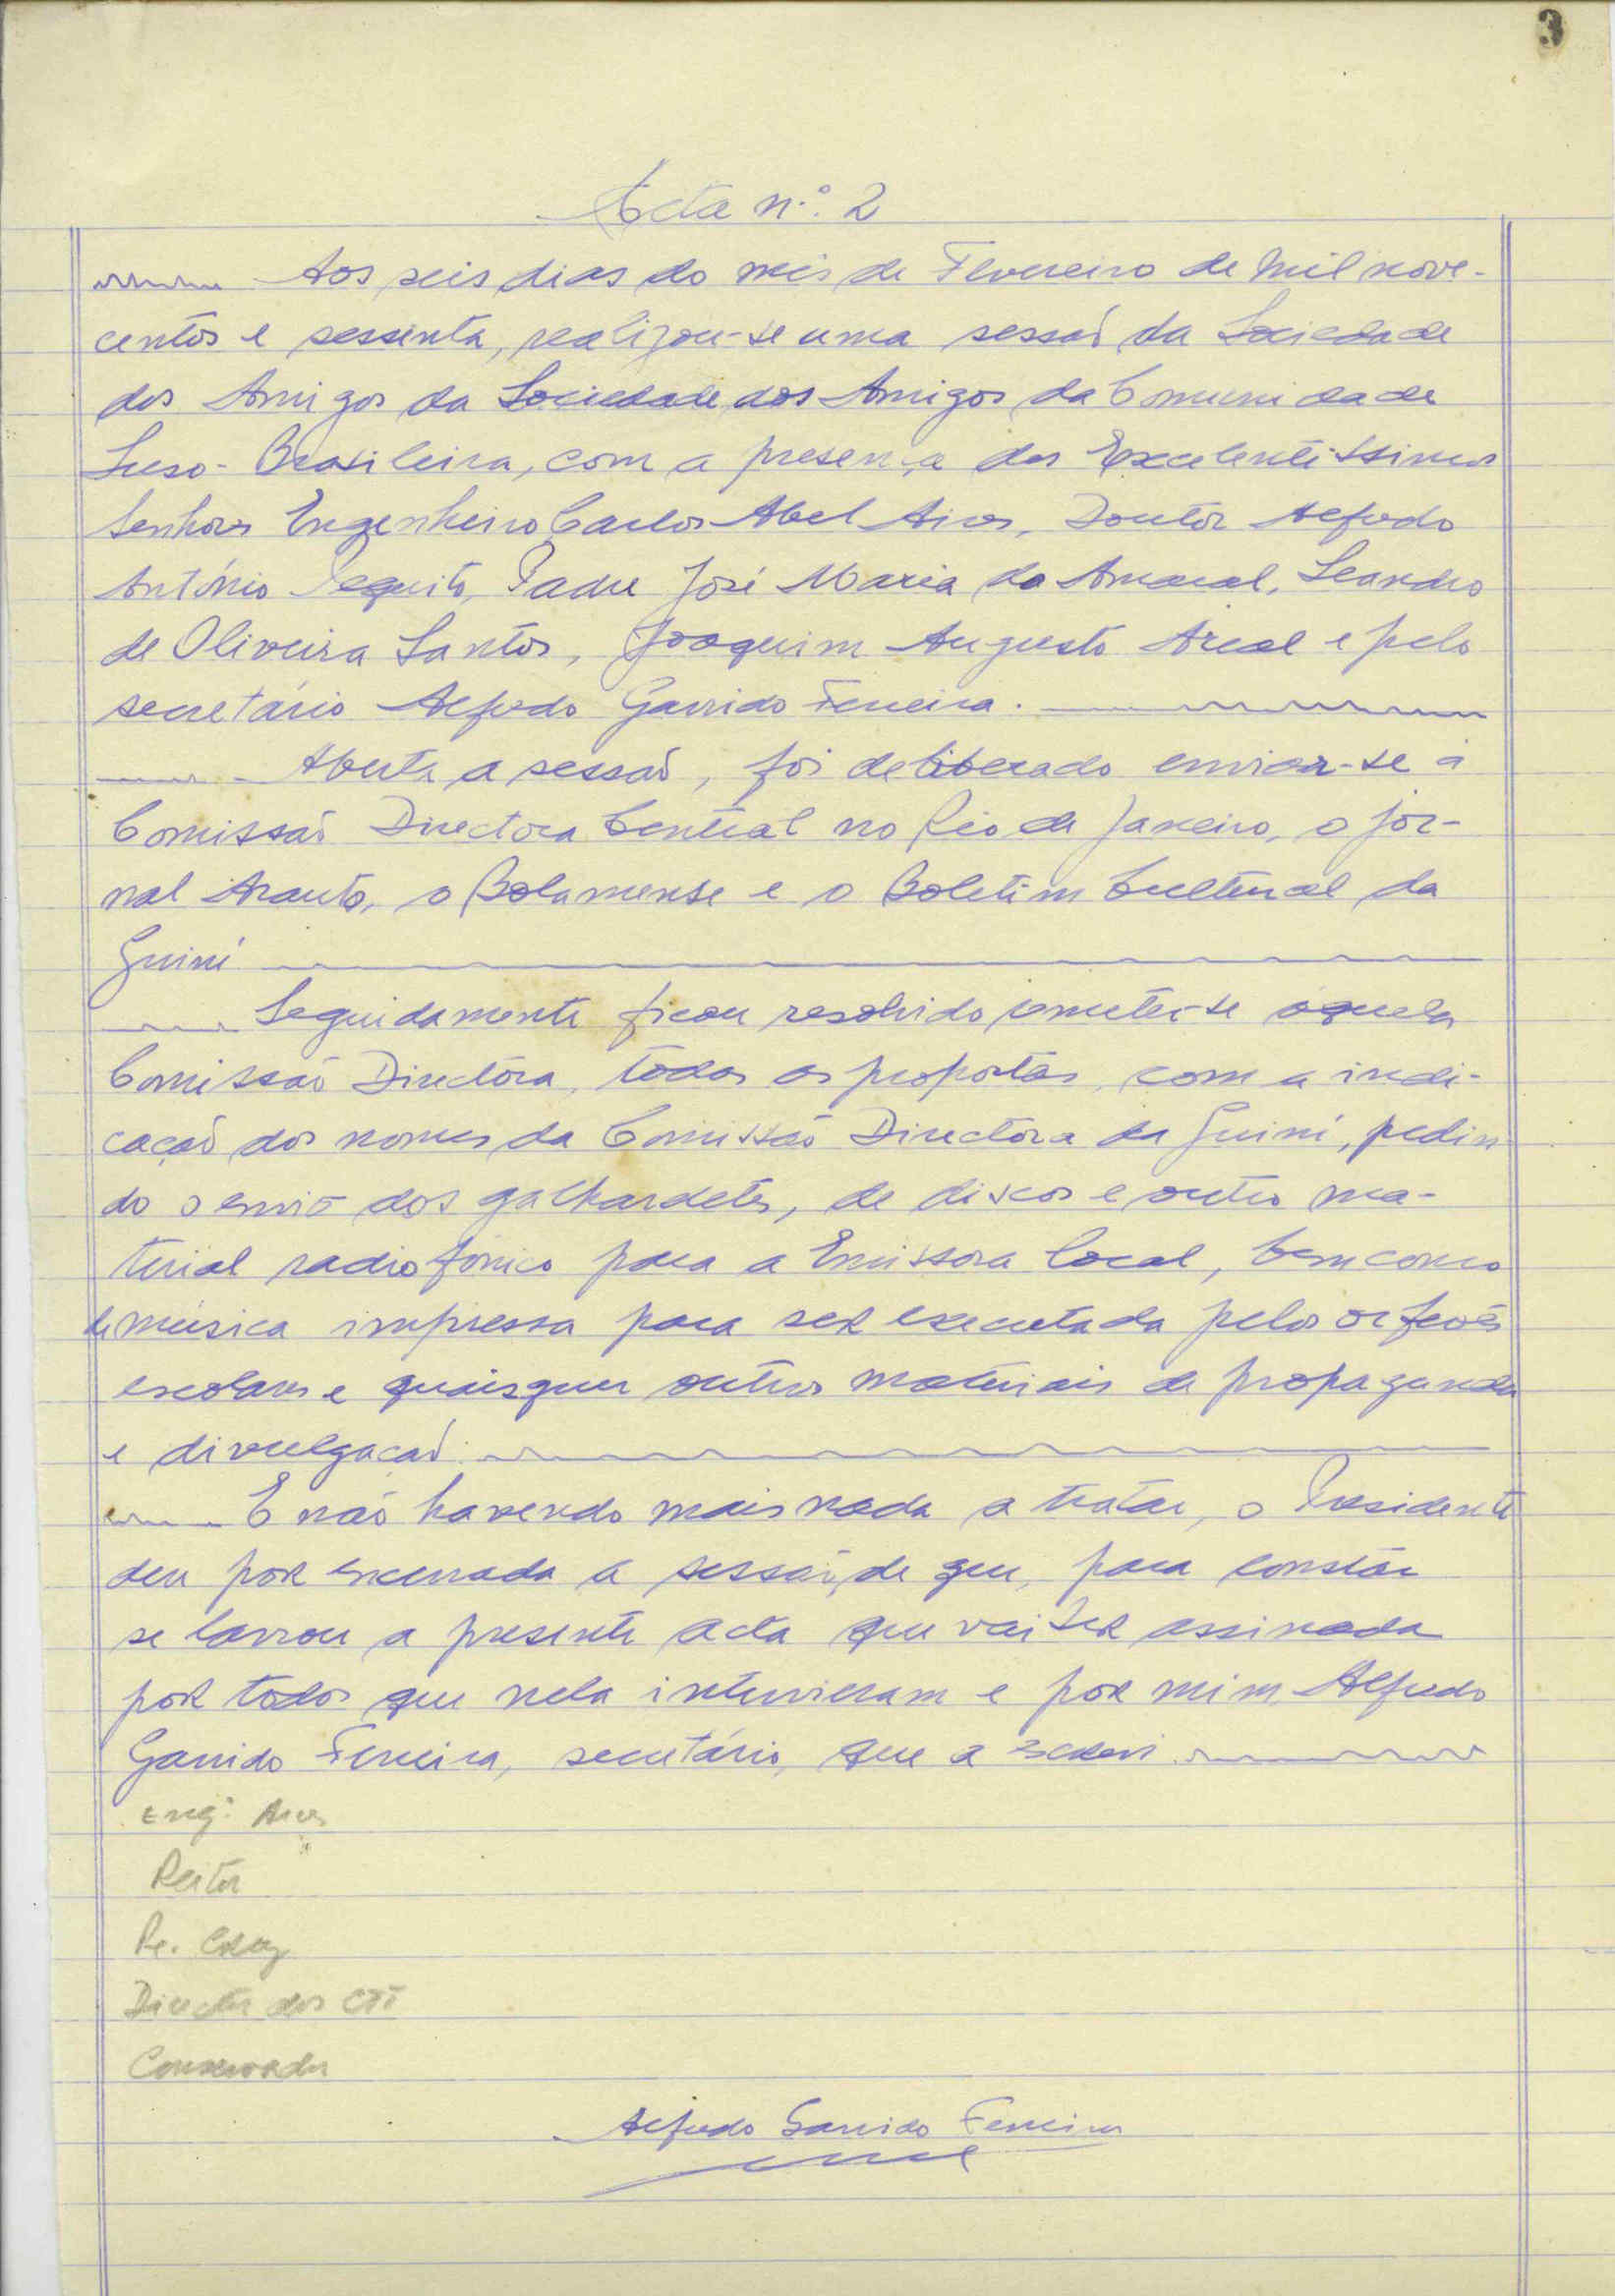 3
Acta n.º 2
Aos seis dias do mês de Fevereiro de mil nove-
centos e sessenta, realizou-se uma sessão da Sociedade
dos Amigos da Sociedade dos Amigos da Comunidade
Luso-Brasileira, com a presença dos Excelentissimos
Senhores Engenheiro Carlos Abel Aires, Doutor Alfredo
António Pequito, Padre José Maria do Amaral, Leandro
de Oliveira Santos, Joaquim Augusto Areal e pelo
secretário Alfredo Garrido Ferreira.
Aberta a sessão, foi deliberado enviar-se à
Comissão Directora Central no Rio de Janeiro, o jor-
nal Arauto, o Bolamense e o Boletim Cultural da
Guiné
Seguidamente ficou resolvido remeter-se àquela
Comissão Directora, todas as propostas, com a indi-
cação dos nomes da Comissão Directora da Guiné, pedin
do o envio dos galhardetes, de discos e outro ma-
terial radiofónico para a Emissora local, bem como
de música impressa para ser executada pelos orfeões
escolares e quaisquer outros materiais de propaganda
e divulgação.
E não havendo mais nada a tratar, o Presidente
deu por encerrada a sessão, de que, para constar
se lavrou a presente acta que vai ser assinada
por todos que nela intervieram e por mim Alfredo
Garrido Ferreira, secretário, que a redevi
Eng.º Aires
Reitor
Pe. Cruz
Director dos CTT
Conservador
Alfredo Garrido Ferreira